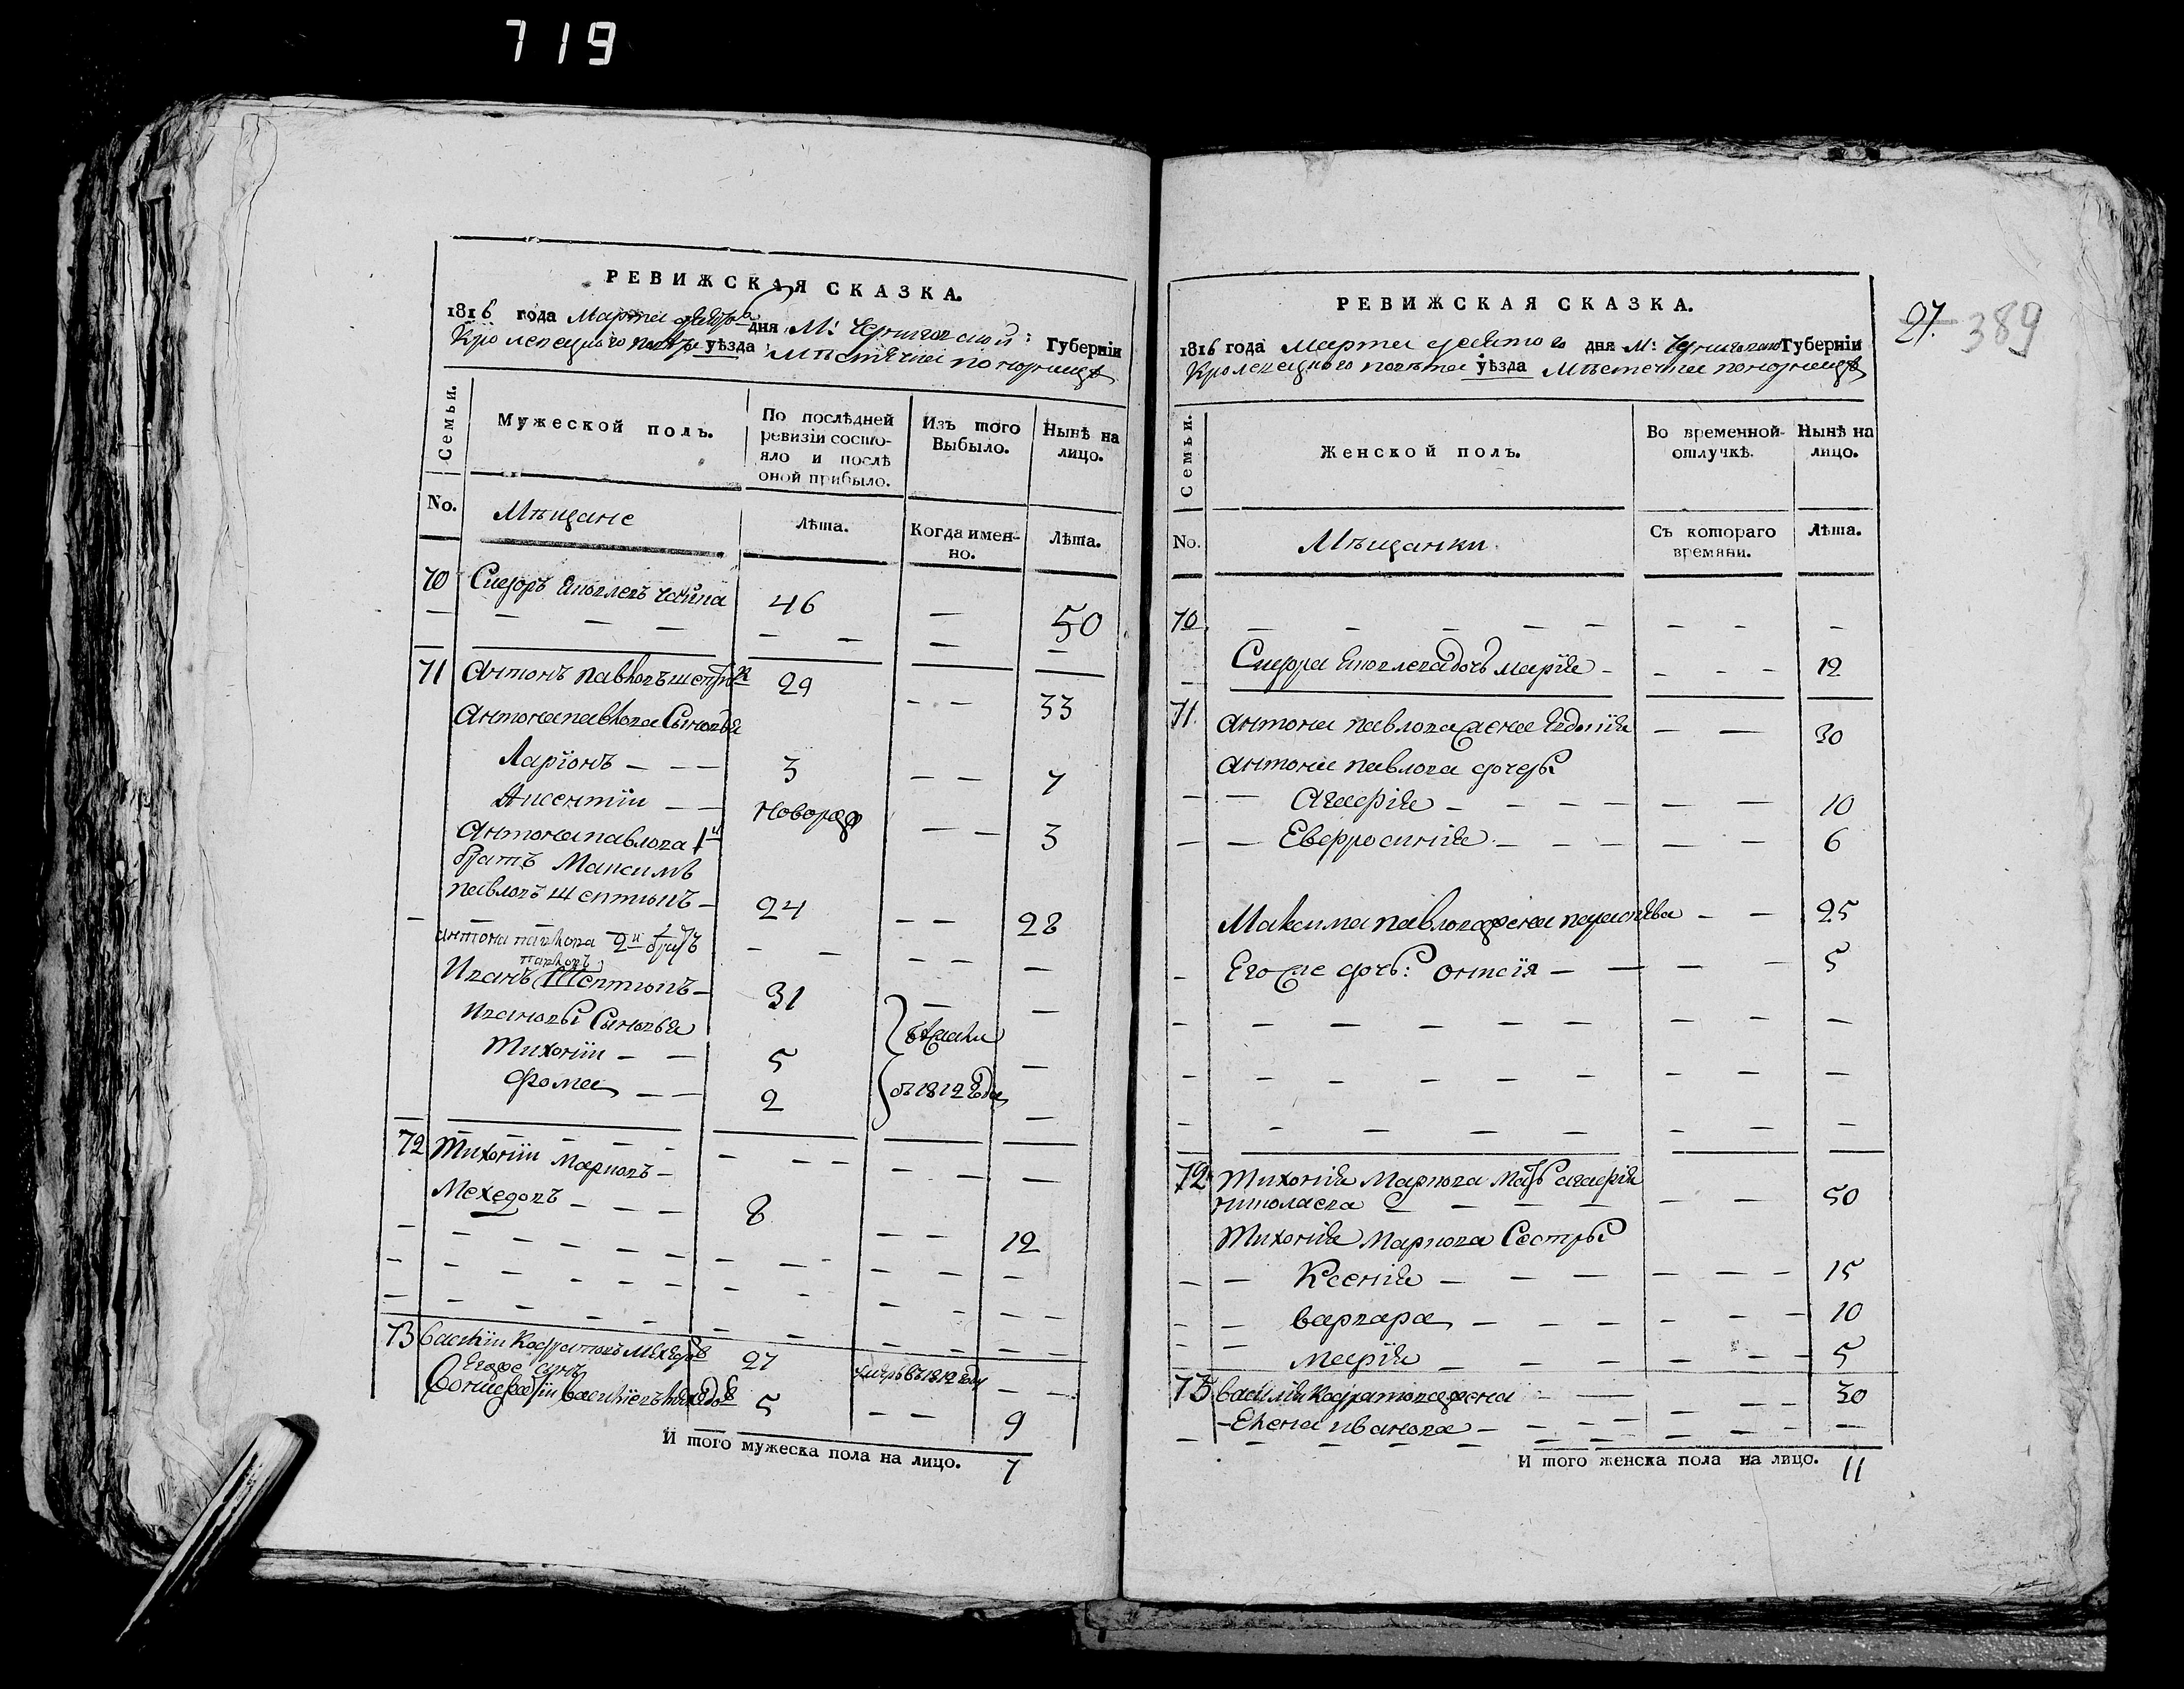 719
РЕВИЖСКАЯ СКАЗКА.
1816 года Марта дня М: Черниговской: Губерніи
Кролевецкого повѣта уѣзда Мѣстечка Понорницѣ
Семьи.
Мужеской полъ.
По послѣдней ревизіи состояло и послѣ оной прибыло.
Изъ того Выбыло.
Нынѣ на лицо.
No.
Мѣщане
Лѣта.
Когда именно.
Лѣта.
70 Сидоръ Яковлевъ 46 — 50
71 Антонъ Павловъ 29 — — 33
Антона Павлова Сыновья
Ларіонъ — — — 3 — — 7
Аксентіи — — новорож — — 3
Антона Павлова 1й
братъ Максимъ
Павловъ Шептюкъ — 24 — — 28
Антона Павлова 2й братъ
Павловъ
Иванъ Шептюкъ — 31 — —
Ивановы Сыновья
Тихоніи — — 5 —
Фома — — 2 въ 1812 годе —
72 Тихоніи Марковъ —
Мехедовъ — — — 8 — — 12
73 Василіи Кодратовъ 27 умеръ въ 1812 году — —
Егоже сынъ
5 — — 9
И того мужеска пола на лицо. 7
РЕВИЖСКАЯ СКАЗКА.
1816 года Марта десятого дня М: Губерніи
Кролевецкого повѣта уѣзда Мѣстечка Понорницѣ
27. 389
Семьи.
Женской полъ.
Во временной отлучкѣ.
Нынѣ на лицо.
No.
Мѣщанки.
Съ котораго времяни.
Лѣта.
70
Сидора Яковлева дочь Марія — — — — 12
71. Антона Павлова жена Евдокія — — 30
Антона Павлова дочеры
Агафія — — — — — — 10
Евфросинія — — — — — 6
Максима Павлова жена — — 25
Его же дочь: — — — — 5
72. Тихонія Маркова Мать Агафія
Николаева — — — — — 50
Тихонія Маркова Сестры
Ксенія — — — — — — 15
Варвара — — — — — — 10
Марія — — — — — — 5
73 Василія Кодратова жена — — — — 30
— Елена Иванова — — — — — —
И того женска пола на лицо. 11